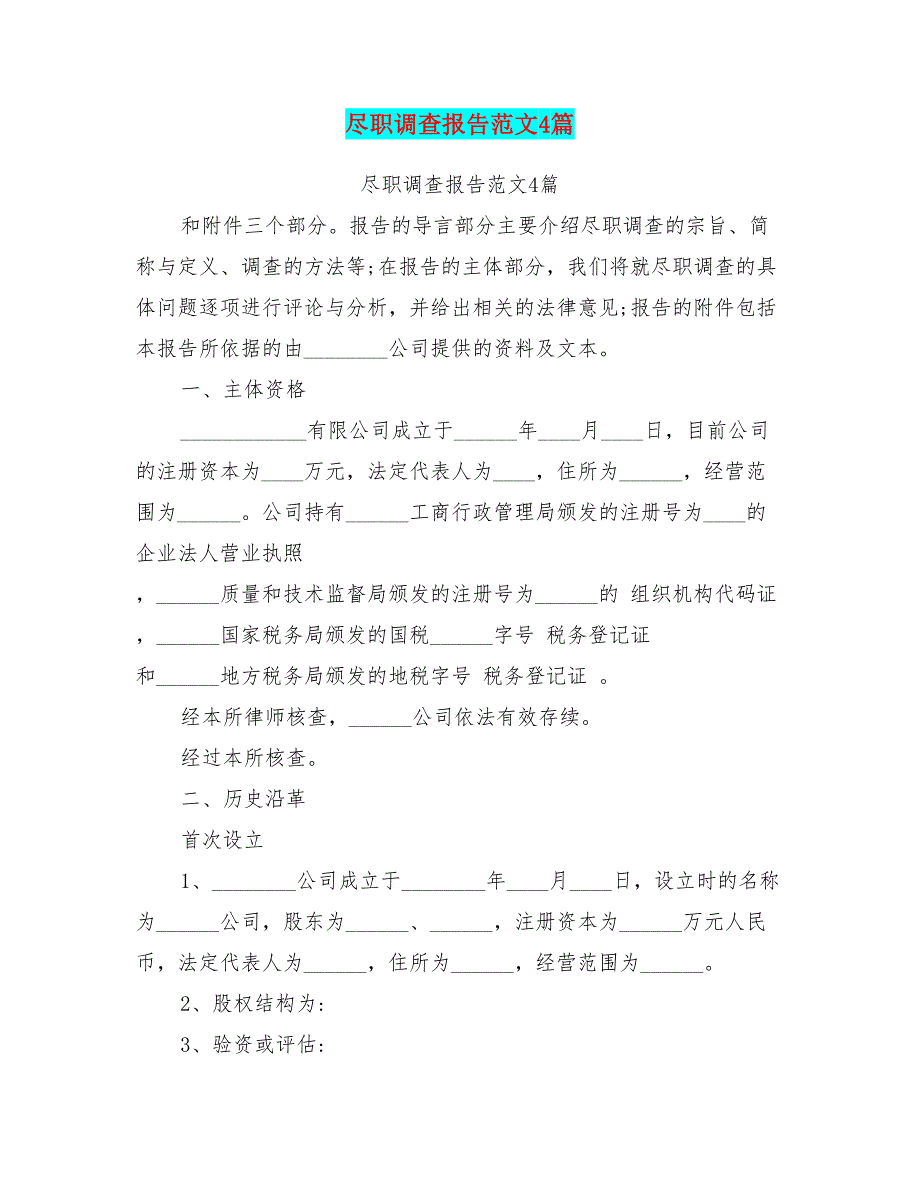 尽职调查报告范文4篇
尽职调查报告范文4篇
和附件三个部分。报告的导言部分主要介绍尽职调查的宗旨、简
称与定义、调查的方法等;在报告的主体部分，我们将就尽职调查的具
体问题逐项进行评论与分析，并给出相关的法律意见;报告的附件包括
本报告所依据的由________公司提供的资料及文本。
一、主体资格
____________有限公司成立于______年____月____日，目前公司
的注册资本为____万元，法定代表人为____，住所为______，经营范
围为______。公司持有______工商行政管理局颁发的注册号为____的
企业法人营业执照
，______质量和技术监督局颁发的注册号为______的 组织机构代码证
，______国家税务局颁发的国税______字号 税务登记证
和______地方税务局颁发的地税字号 税务登记证 。
经本所律师核查，______公司依法有效存续。
经过本所核查。
二、历史沿革
首次设立
1、________公司成立于________年____月____日，设立时的名称
为______公司，股东为______、______，注册资本为______万元人民
币，法定代表人为______，住所为______，经营范围为______。
2、股权结构为:
3、验资或评估: